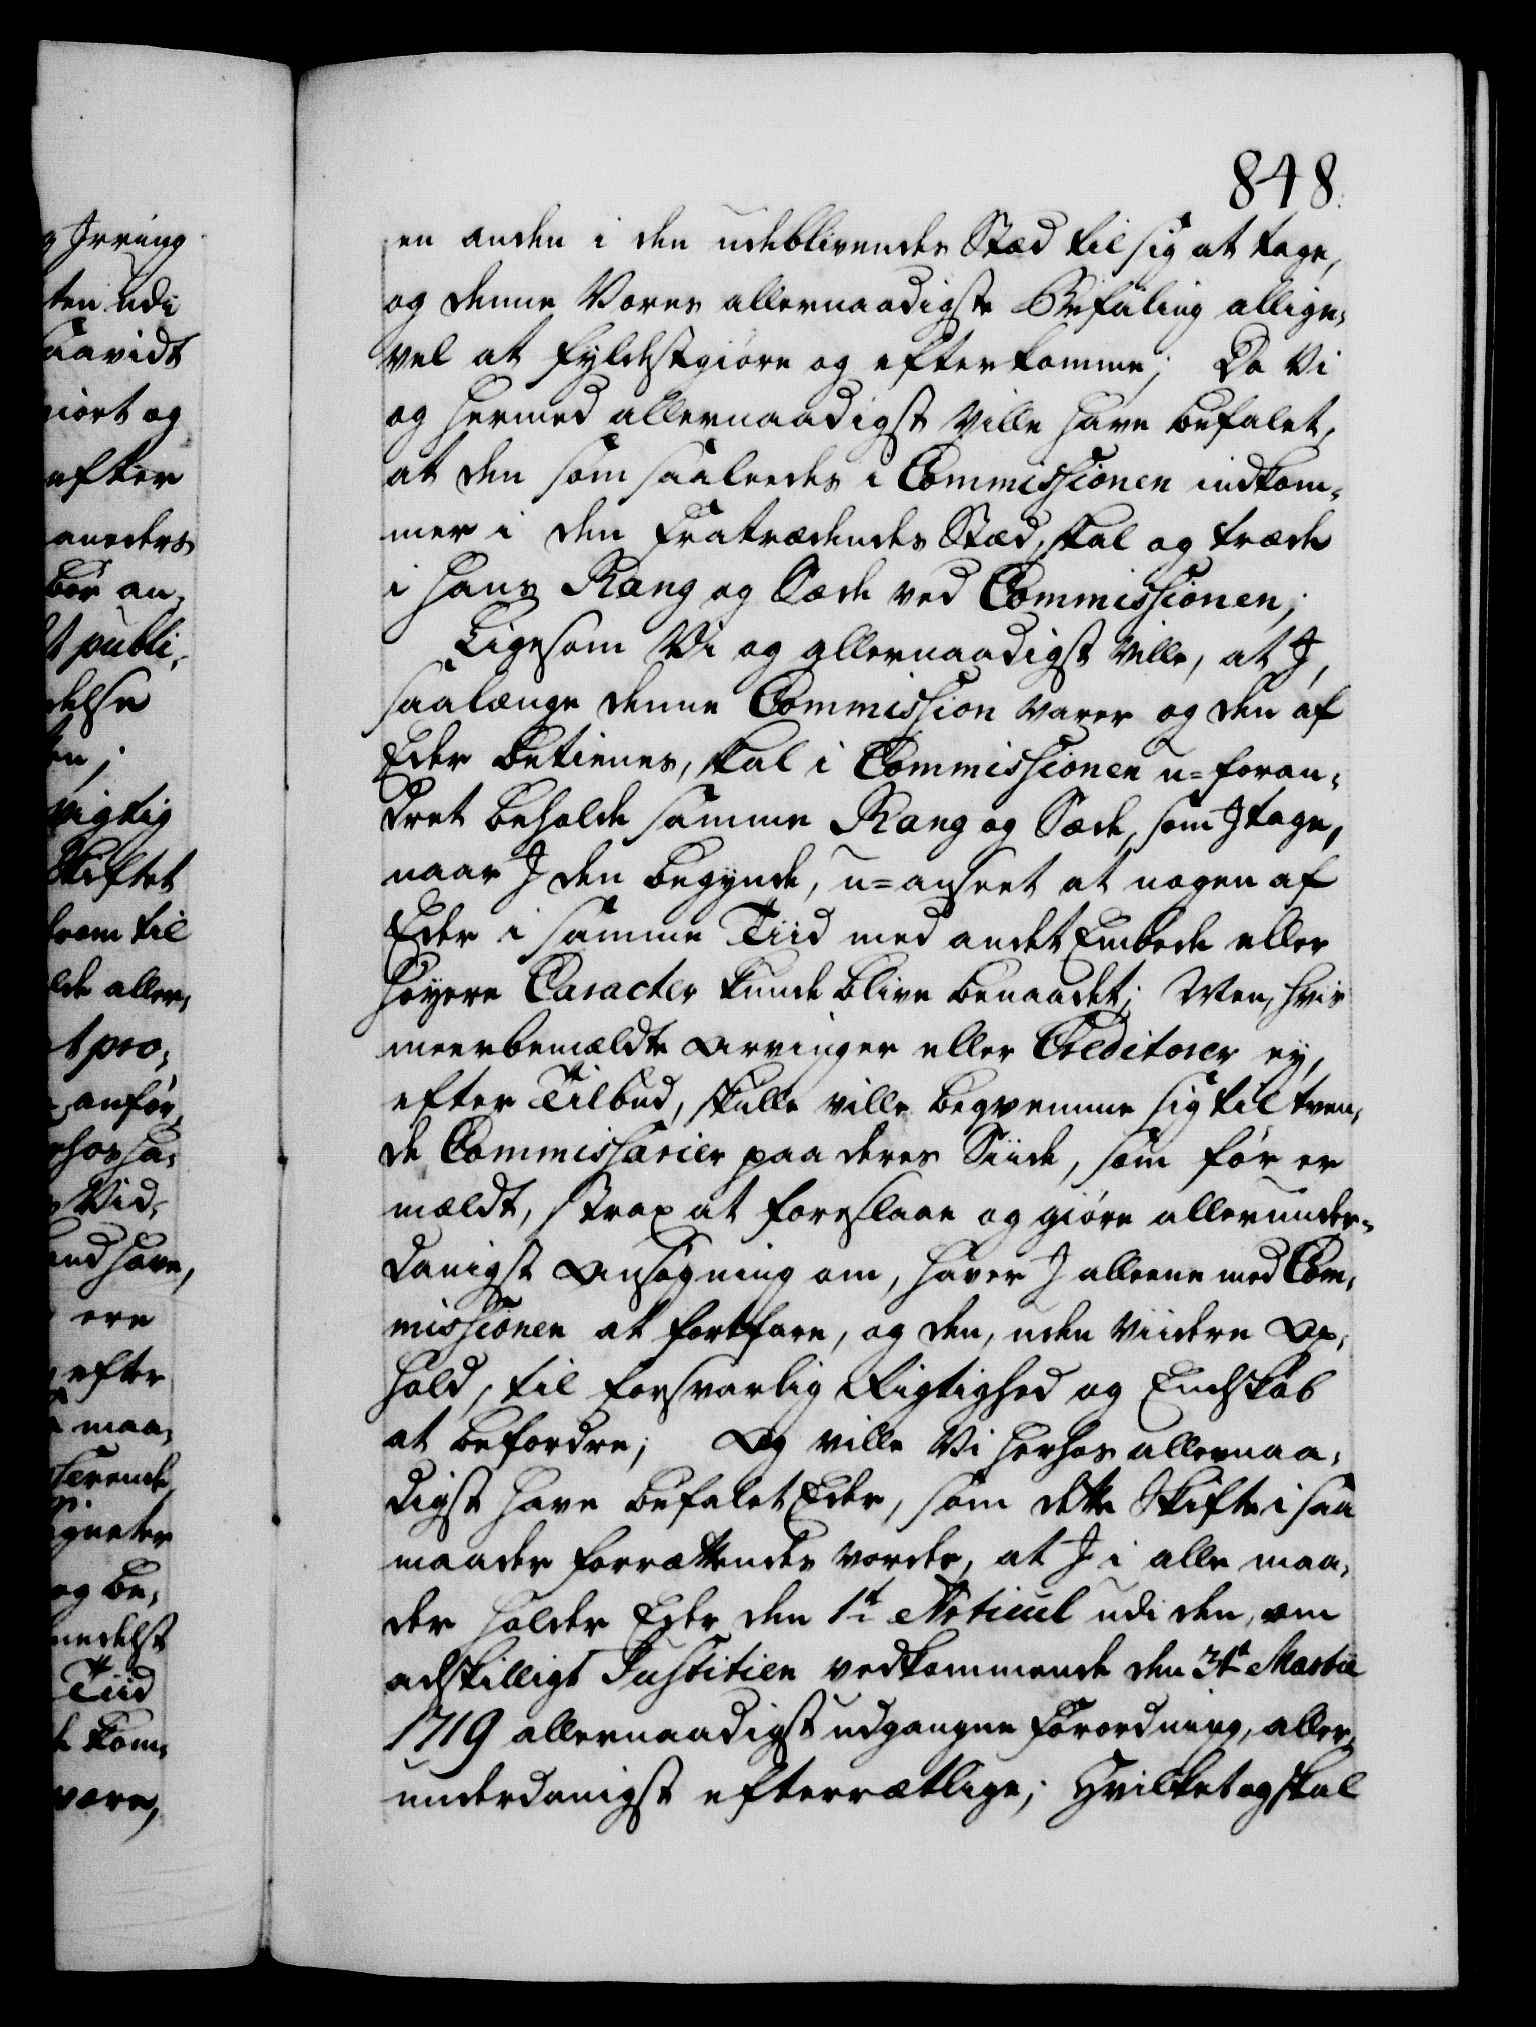 848.
en anden i den udeblivendes Stæd til sig at tage,
og denne Vores allernaadigste Befaling allige,
vel at fyldestgiøre og efterkomme; Da Vi
og hermed allernaadigst Ville have befalet,
at den som saaleedes i Commissionen indkom,
mer i den fratrædendes Stæd, skal og træde
i hans Rang og Sæde ved Commissionen;
Ligesom Vi og allernaadigst Ville, at J,
saalænge denne Commission varer og den af
Eder betienes, skal i Commissionen u=foran,
dret beholde samme Rang og Sæde, som J tage,
naar J den begynde, u=anseet at nogen af
Eder i samme Tiid med andet Embede eller
høyere Caracter kunde blive benaadet; Men, hvis
meerbemældte Arvinger eller Creditorer ey,
efter Tilbud, skulle ville beqvemme sig til tven,
de Commissarier paa deres Siide, som før er
mældt, strax at foreslaae og giøre allerunder=
danigst Ansøgning om, haver J alleene med Com,
missionen at fortfare, og den, uden viidere Op,
hold, til forsvarlig Rigtighed og Endskab
at befordre; Og ville Vi herhos allernaa,
digst have befalet Eder, som dette Skifte i saa
maader forrættendes vorder, at J i alle maa,
der holder Eder den 1te Articul udi den, om
adskilligt Justitien vedkommende den 31te Martii
1719 allernaadigst udgangne Forordning, aller,
underdanigst efterrætlige; Hvilket og skal
g Irring
ten udi
saavidt
giort og
efter
aneders
bør an,
t publi,
delse
en;
vigtig
Skiftet
frem til
lde aller,
t pro,
anfør,
Vid,
and have,
ere
efter
maa,
og be,
Tiid
kom,
være,